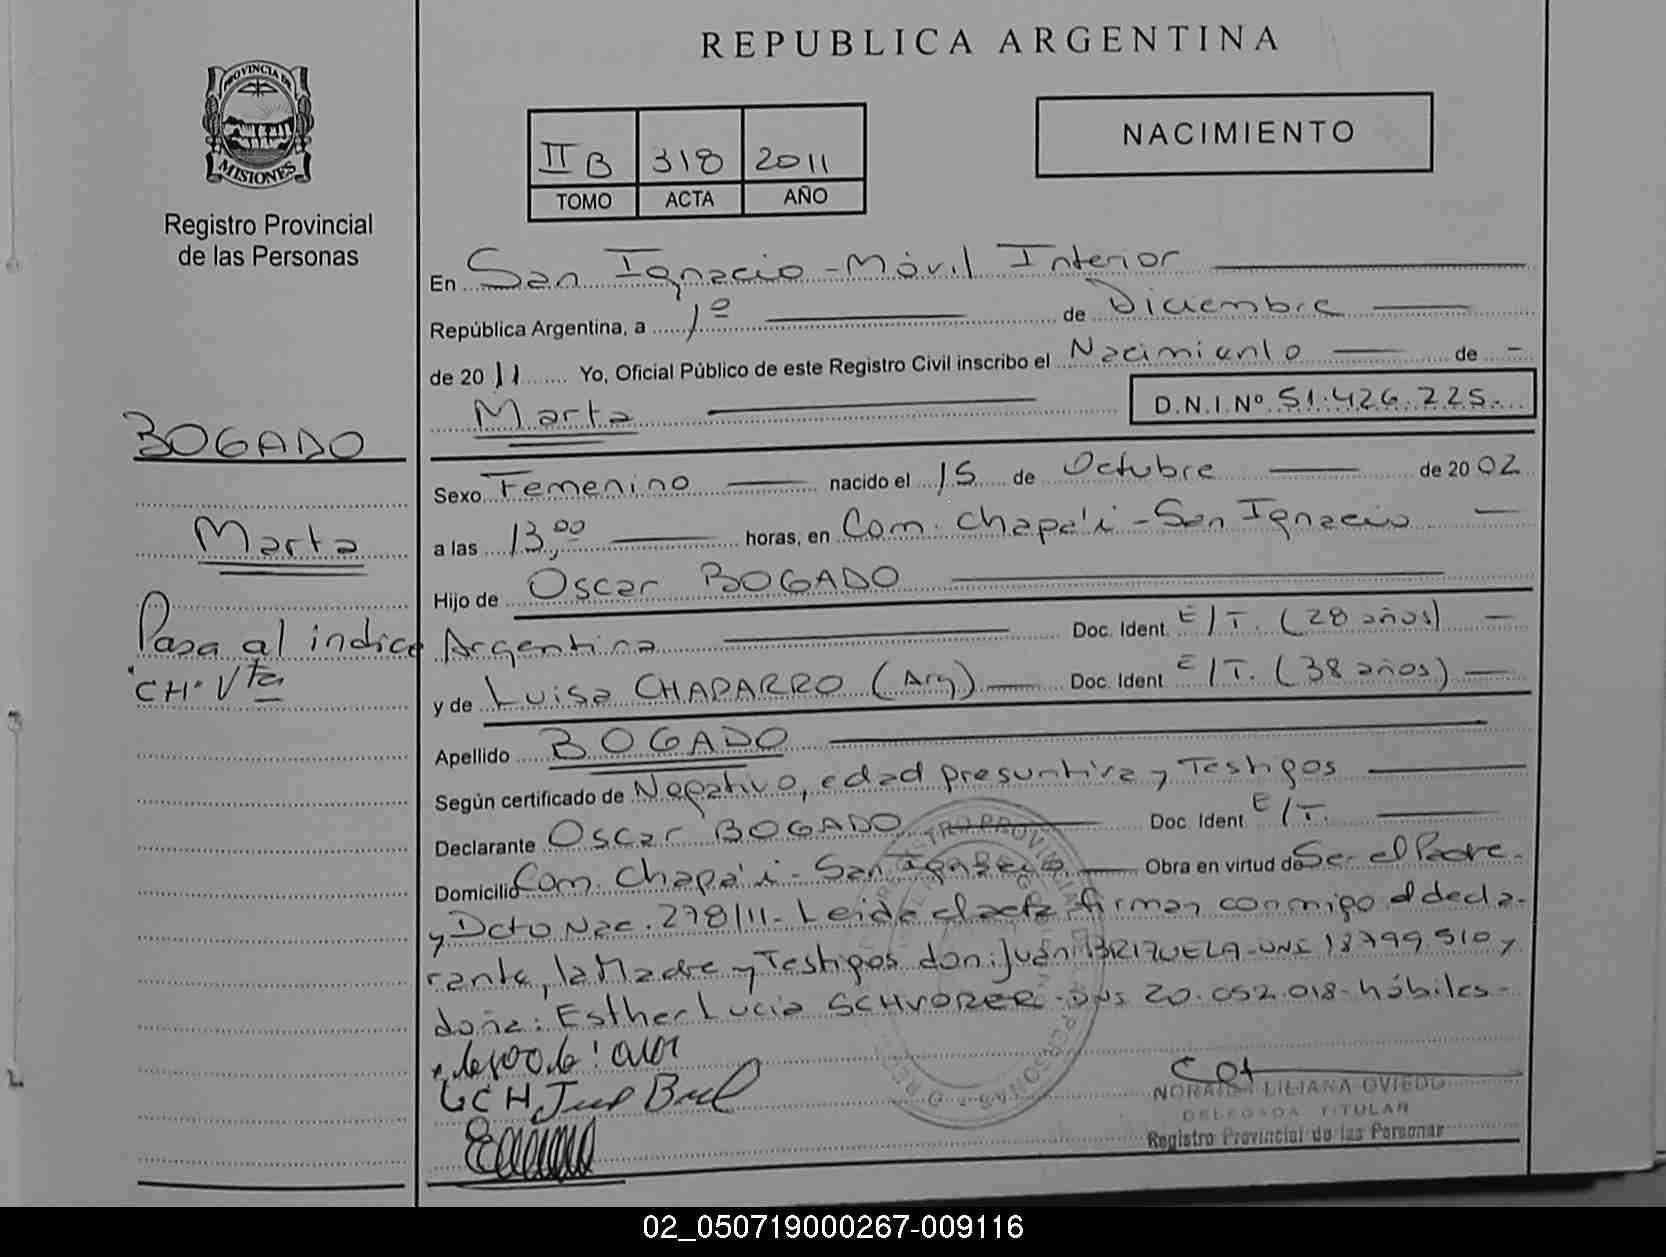 REPUBLICA ARGENTINA
PROVINCIA DE
MISIONES
Registro Provincial
de las Personas
II B 318 2011
TOMO ACTA AÑO
NACIMIENTO
En San Ignacio - Móvil Interior
República Argentina, a 1º de Diciembre
de 2011 Yo, Oficial Público de este Registro Civil inscribo el Nacimiento de -
Marta
D.N.I. Nº 51.426.225.-
BOGADO
Marta
Pasa al indice
CH. Vta
Sexo Femenino nacido el 15 de Octubre de 2002
a las 13,00 horas, en Com. Chapa'i - San Ignacio
Hijo de Oscar BOGADO
Argentina Doc. Ident. E/T. (28 años)
y de Luisa CHAPARRO (Arg) Doc. Ident E/T. (38 años)
Apellido BOGADO
Según certificado de Negativo, edad presuntiva y Testigos
Declarante Oscar BOGADO Doc. Ident E/T.
Domicilio Com. Chapa'i - San Ignacio Obra en virtud de Ser el Padre.
y Dcto Nac. 278/11- Leida el acta firman conmigo el decla-
rante, la Madre y Testigos don: Juan BRIZUELA - DNI 13799510 y
doña: Esther Lucia SCHVORER - DNI 20.052.018- hábiles-
LCH
NORAIDA LILIANA OVIEDO
DELEGADA TITULAR
Registro Provincial de las Personas
02_050719000267-009116